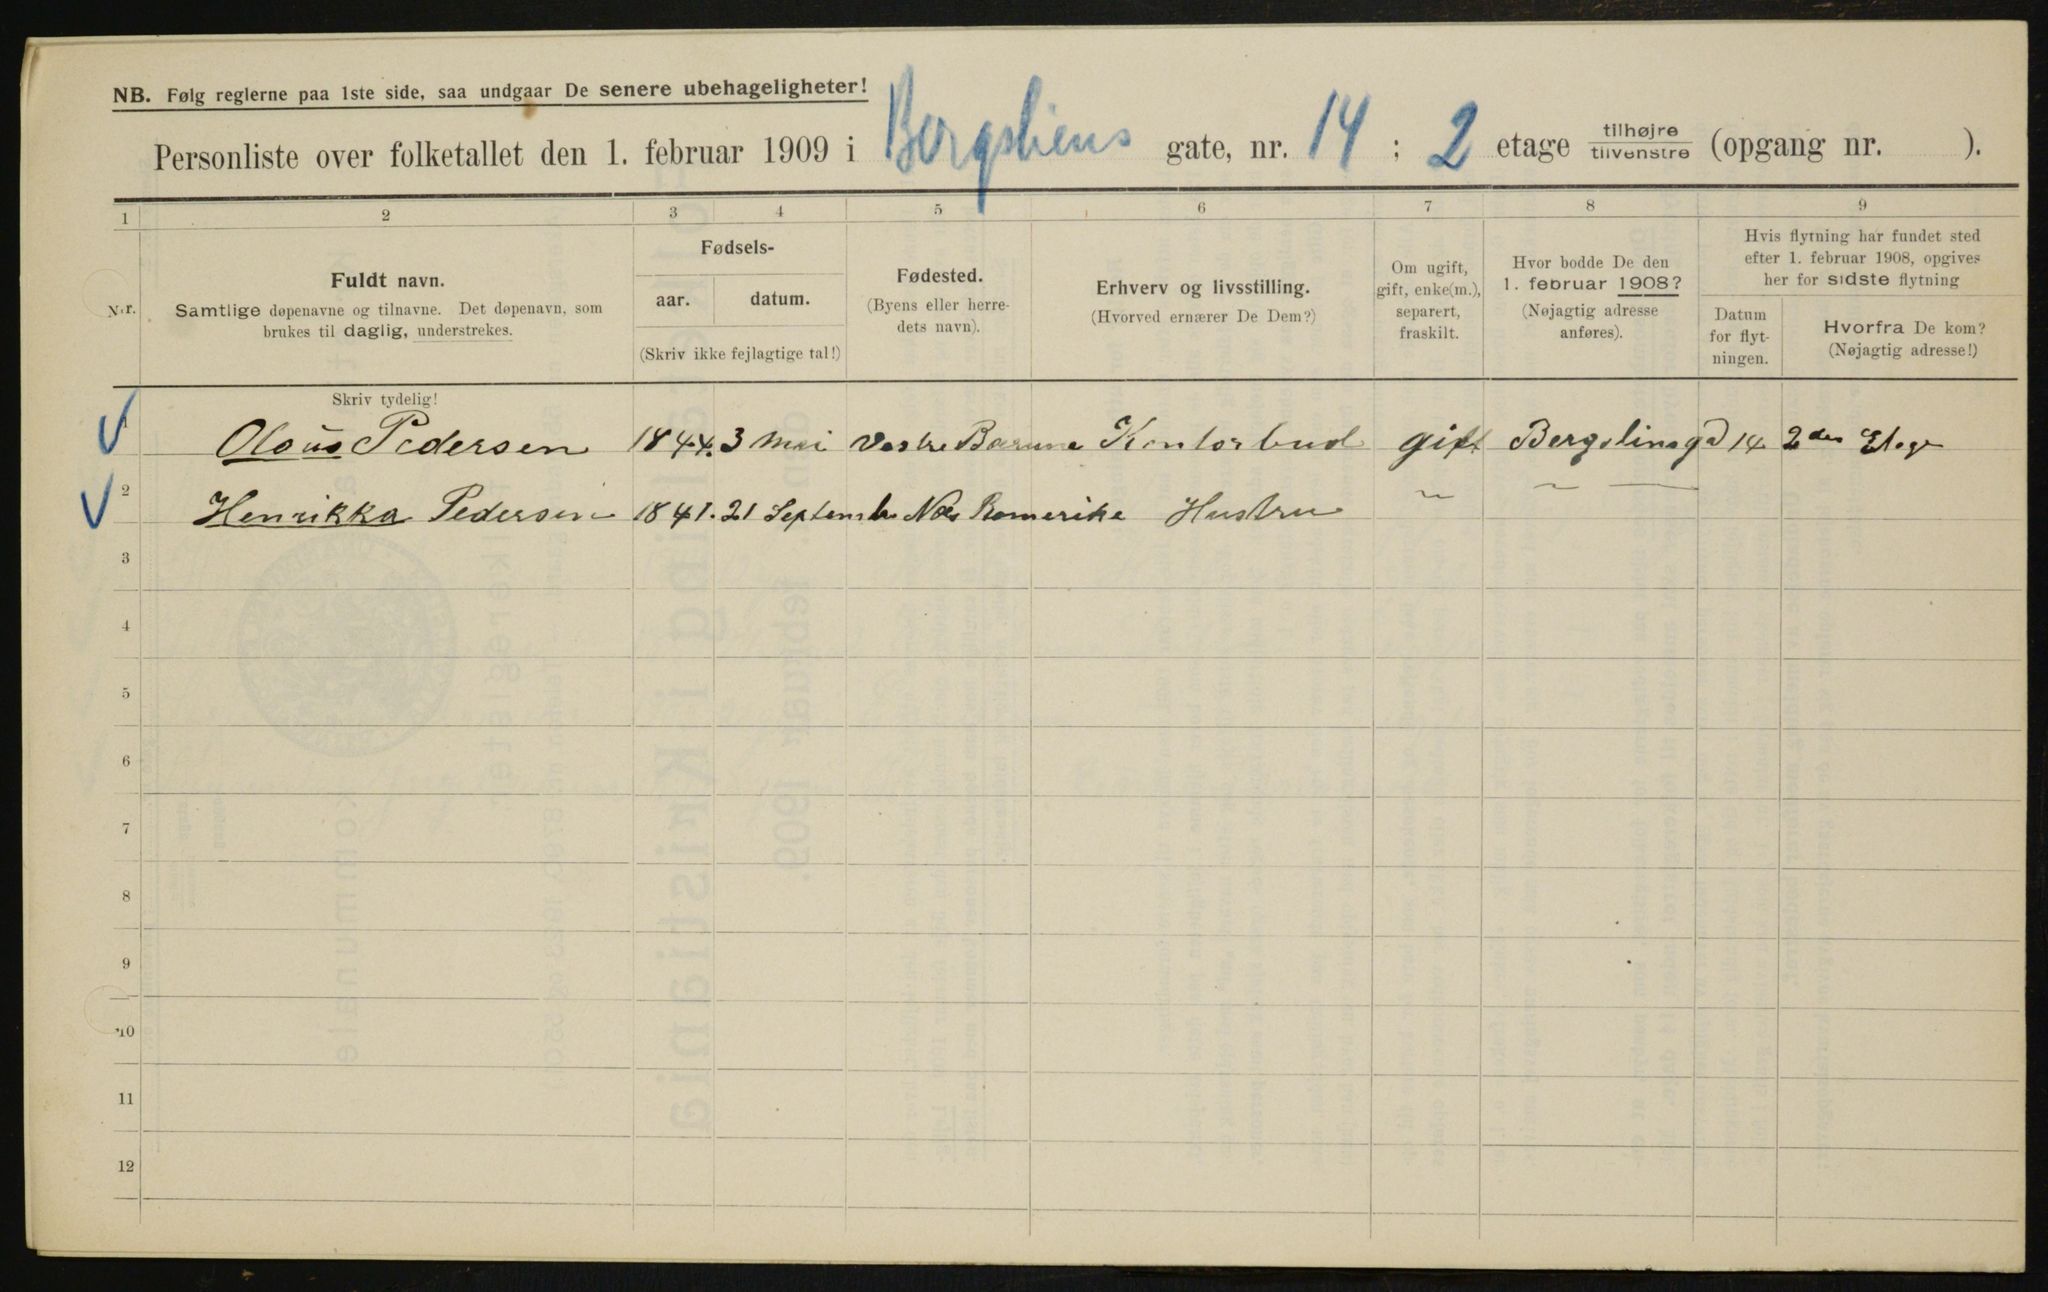 NB. Følg reglerne paa 1ste side, saa undgaar De senere ubehageligheter!
Personliste over folketallet den 1. februar 1909 i Bergsliens gate, nr. 14 ; 2 etage tilhøjre/tilvenstre (opgang nr. ).
1 2 3 4 5 6 7 8 9
Nr.
Fuldt navn.
Samtlige døpenavne og tilnavne. Det døpenavn, som
brukes til daglig, understrekes.
Fødsels-
aar. datum.
(Skriv ikke fejlagtige tal!)
Fødested.
(Byens eller herre-
dets navn).
Erhverv og livsstilling.
(Hvorved ernærer De Dem?)
Om ugift,
gift, enke(m.),
separert,
fraskilt.
Hvor bodde De den
1. februar 1908?
(Nøjagtig adresse
anføres).
Hvis flytning har fundet sted
efter 1. februar 1908, opgives
her for sidste flytning
Datum
for flyt-
ningen.
Hvorfra De kom?
(Nøjagtig adresse!)
Skriv tydelig!
1 Olaus Pedersen 1844. 3 Mai Vestre Barum Kontorbud gift Bergslinsgd 14 2den Etage
2 Henrikka Pedersen 1841. 21 Septembr Nes Romerike Hustru " " —
3
4
5
6
7
8
9
10
11
12